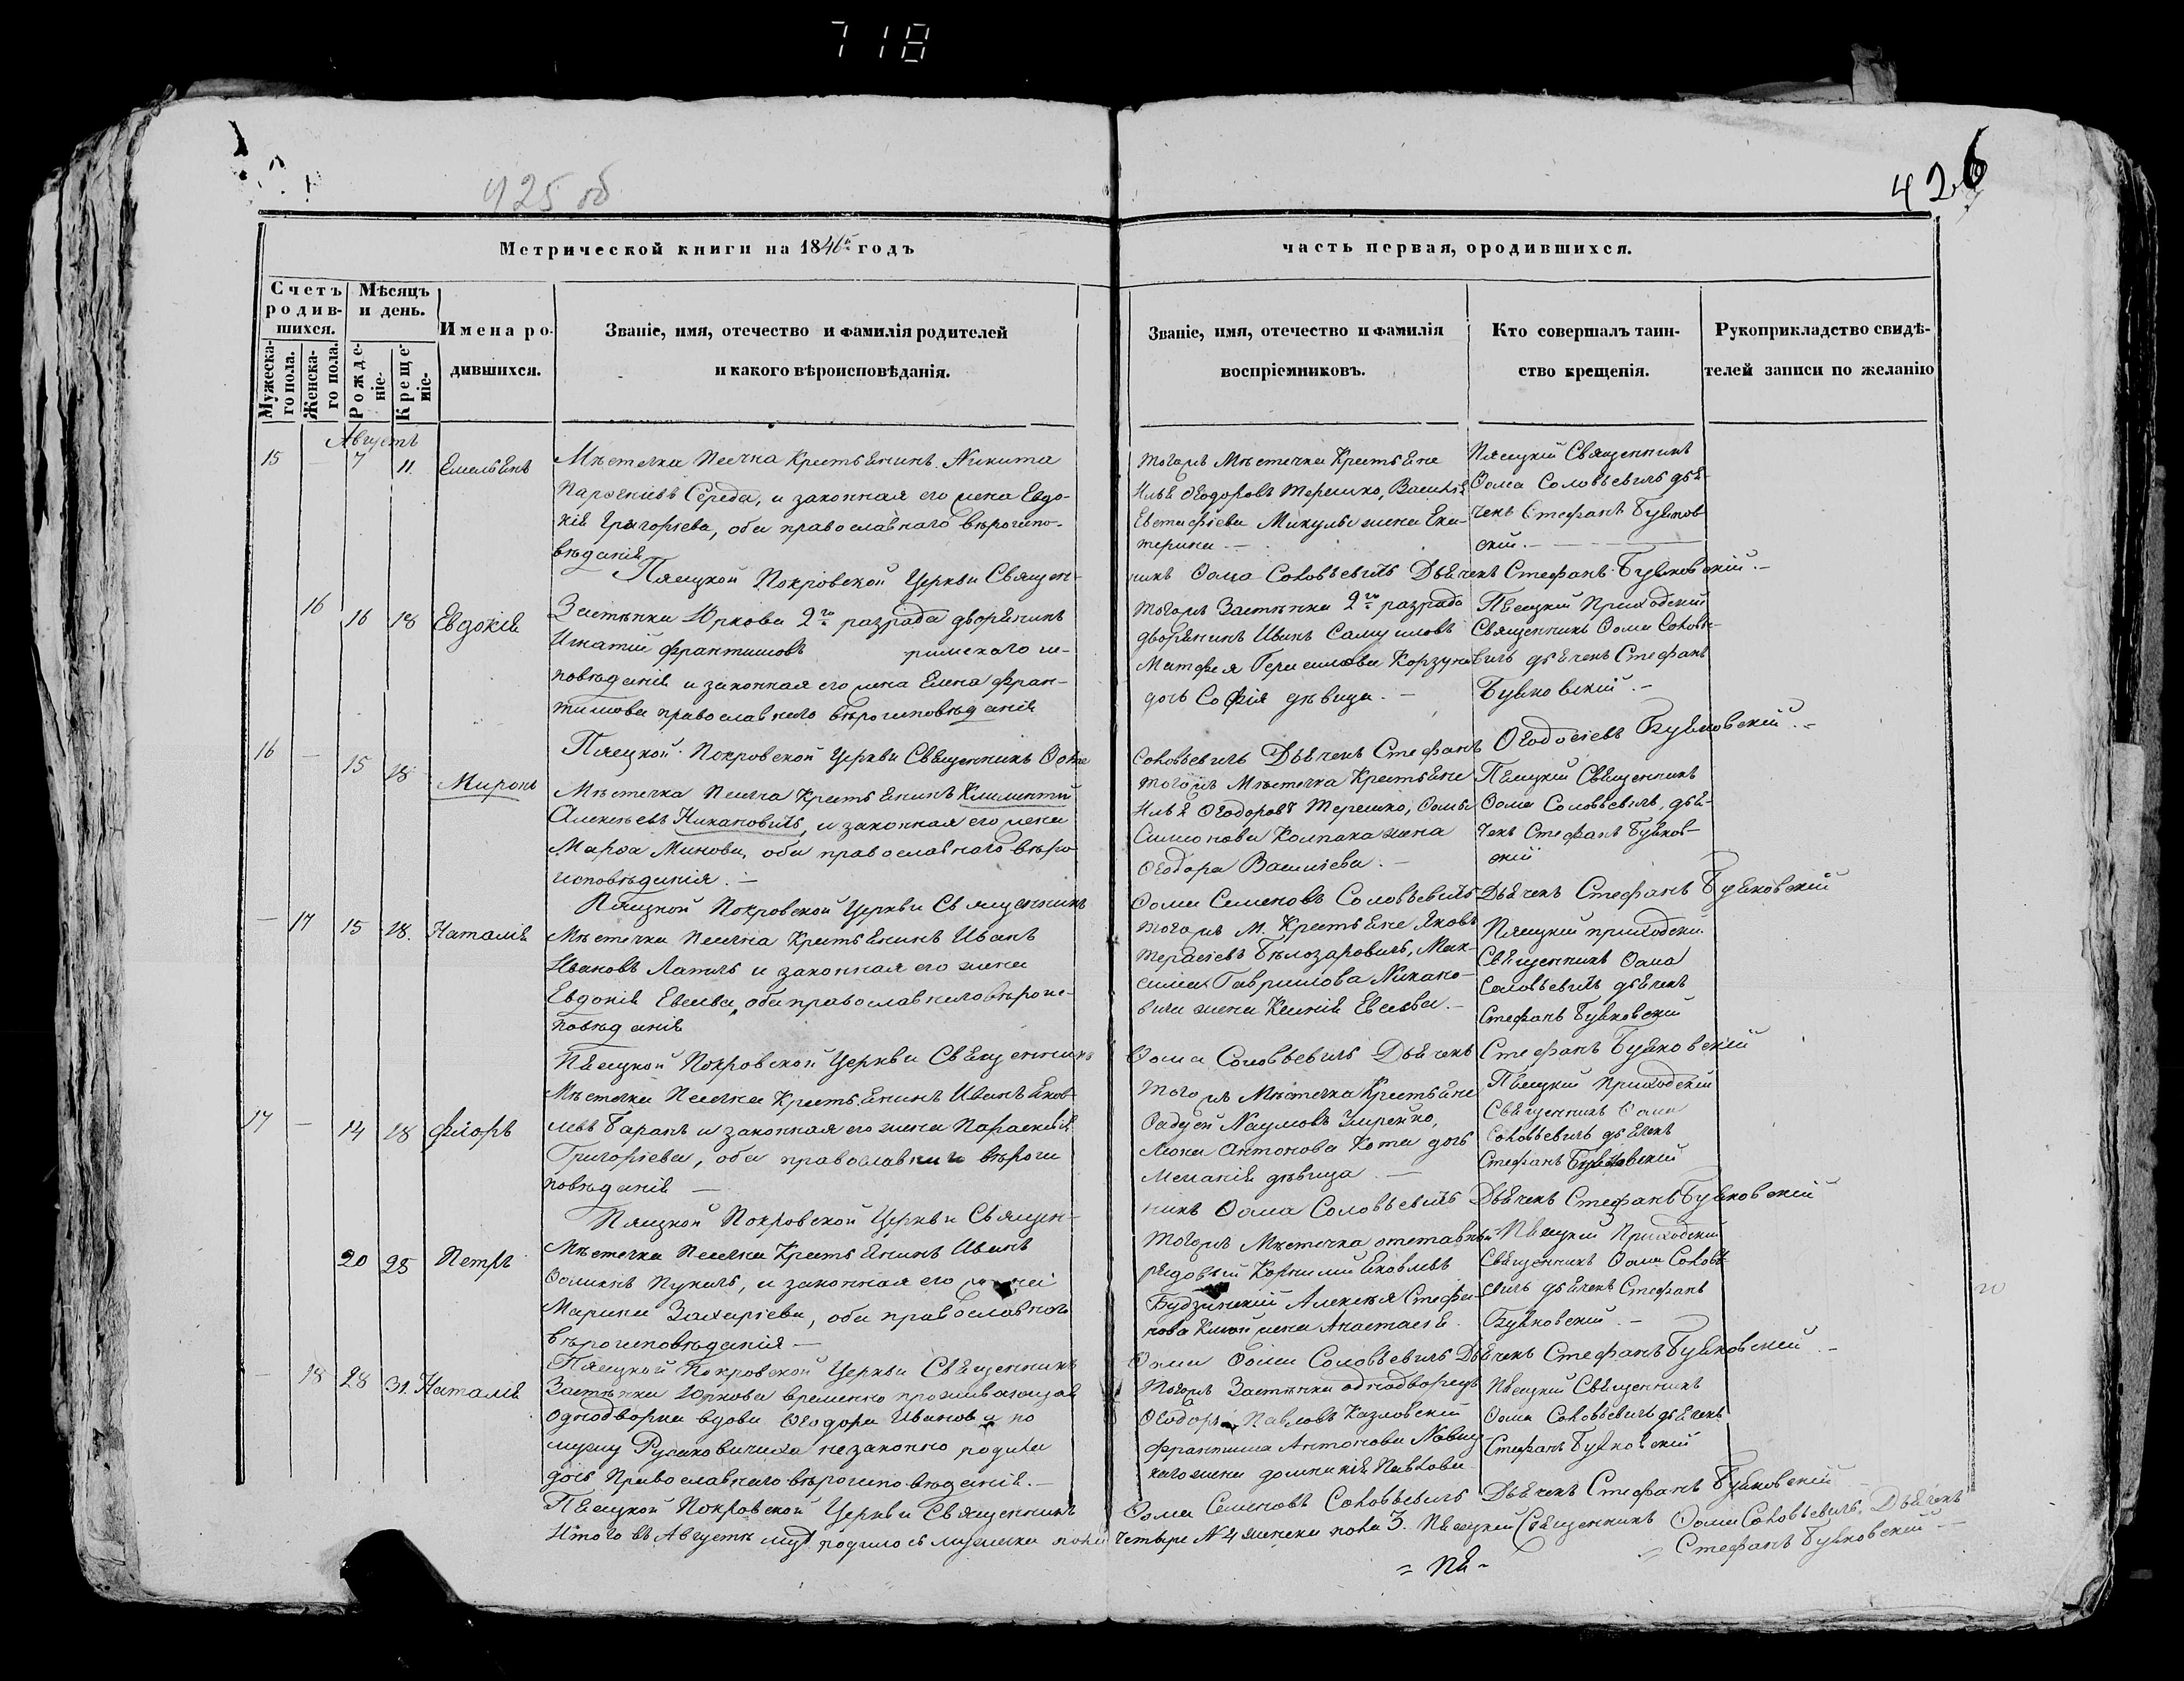 718
425 об
426
Метрической книги на 1846й годъ
часть первая, о родившихся.
Счетъ родив-шихся.
Мѣсяцъ и день.
Мужеска-го пола.
Женска-го пола.
Рожде-ніе.
Креще-ніе.
Имена ро-дившихся.
Званіе, имя, отечество и фамилія родителей
и какого вѣроисповѣданія.
Званіе, имя, отечество и фамилія
воспріемниковъ.
Кто совершалъ таин-
ство крещенія.
Рукоприкладство свидѣ-
телей записи по желанію
Августъ
15 — 7 11 Емельянъ
Мѣстечка Песчка Крестьянинъ Никита
Парѳеніевъ Середа, и законная его жена Евдо-
кія Григоріева, оба православнаго вѣроиспо-
вѣданія
тогожъ Мѣстечка Крестьяне
Илья Ѳеодоровъ Терешко, Василія
Евстафіева Микулы жена Ека-
терина —
Пясцкій Священникъ
Ѳома Соловьевичъ дья-
чекъ Стефанъ Буяков-
скій —
Пясцкой Покровской Церкви Священ-
никъ Ѳома Соловьевичъ Дьячекъ Стефанъ Буяковскій —
16 16 18 Евдокія
Застѣнка Юркова 2го разряда дворянинъ
Игнатій Францишковъ римскаго ис-
повѣданія и законная его жена Елена Фран-
тишкова православнаго вѣроисповѣданія
тогожъ Застѣнка 2го разряда
дворянинъ Иванъ Самуиловъ
Матфея Герасимова Корзуна
дочь Софія дѣвица —
Пясцкій Приходскій
Священникъ Ѳома Соловье-
вичъ дьячекъ Стефанъ
Буяковскій —
Пясцкой Покровской Церкви Священникъ Ѳома
Соловьевичъ Дьячекъ Стефанъ Ѳеодосіевъ Буяковскій —
16 — 15 18 Миронъ
Мѣстечка Песчка Крестьянинъ Климентій
Алексѣевъ Никановичъ, и законная его жена
Марѳа Минова, оба православнаго вѣро-
исповѣданія —
тогожъ Мѣстечка Крестьяне
Илья Ѳеодоровъ Терешко, Ѳомы
Симонова Колпака жена
Ѳеодора Василіева —
Пясцкій Священникъ
Ѳома Соловьевичъ, дья-
чекъ Стефанъ Буяков-
скій
Пясцкой Покровской Церкви Священникъ
Ѳома Семеновъ Соловьевичъ Дьячекъ Стефанъ Буяковскій
— 17 15 18. Наталія
Мѣстечка Песчка Крестьянинъ Иванъ
Ивановъ Латышъ и законная его жена
Евдокія Евсева, оба православнаго вѣроис-
повѣданія
тогожъ М. Крестьяне Яковъ
Терасіевъ Бѣлозаровичъ, Мак-
сима Гаврилова Никано-
вича жена Ксенія Евсева —
Пясцкій приходскій
Священникъ Ѳома
Соловьевичъ дьячекъ
Стефанъ Буяковскій
Пясцкой Покровской Церкви Священникъ
Ѳома Соловьевичъ Дьячекъ Стефанъ Буяковскій
17 — 14 18 Фіоръ
Мѣстечка Песчка Крестьянинъ Иванъ Яков-
левъ Баранъ и законная его жена Параскевія
Григоріева, оба православнаго вѣроис-
повѣданія —
тогожъ Мѣстечка Крестьяне
Ѳадей Наумовъ,
Антонова Кота дочь
Меланія дѣвица —
Пясцкій Приходскій
Священникъ Ѳома
Соловьевичъ дьячекъ
Стефанъ Буяковскій
Пясцкой Покровской Церкви Священ-
никъ Ѳома Соловьевичъ Дьячекъ Стефанъ Буяковскій
20 25 Петръ
Мѣстечка Песчка Крестьянинъ Иванъ
Ѳоминъ, и законная его жена
Марина Захаріева, оба православнаго
вѣроисповѣданія —
тогожъ Мѣстечка отставный
рядовый Корнилій Яковлевъ
Будзинскій Алексѣя Стефа-
нова жена Анастасія.
Пясцкій Приходскій
Священникъ Ѳома Соловье-
вичъ дьячекъ Стефанъ
Буяковскій —
Пясцкой Покровской Церкви Священникъ
Ѳома Соловьевичъ Дьячекъ Стефанъ Буяковскій —
— 18 28 31. Наталія
Застѣнка Юркова временно проживающая
однодворка вдова Ѳеодора Иванова по
мужу Русаковичиха незаконно родила
дочь Православнаго вѣроисповѣданія —
тогожъ Застѣнка однодворецъ
Ѳеодоръ Павловъ Казловскій
Францишка Антонова Новиц-
каго жена Доминикія Павлова
Пясцкій Священникъ
Ѳома Соловьевичъ дьячекъ
Стефанъ Буяковскій
Пясцкой Покровской Церкви Священникъ
Ѳома Семеновъ Соловьевичъ Дьячекъ Стефанъ Буяковскій
Итого въ Августѣ родилось мужеска пола четыре № 4 женска пола 3. Пясцкій Священникъ Ѳома Соловьевичъ. Дьячекъ
Стефанъ Буяковскій —